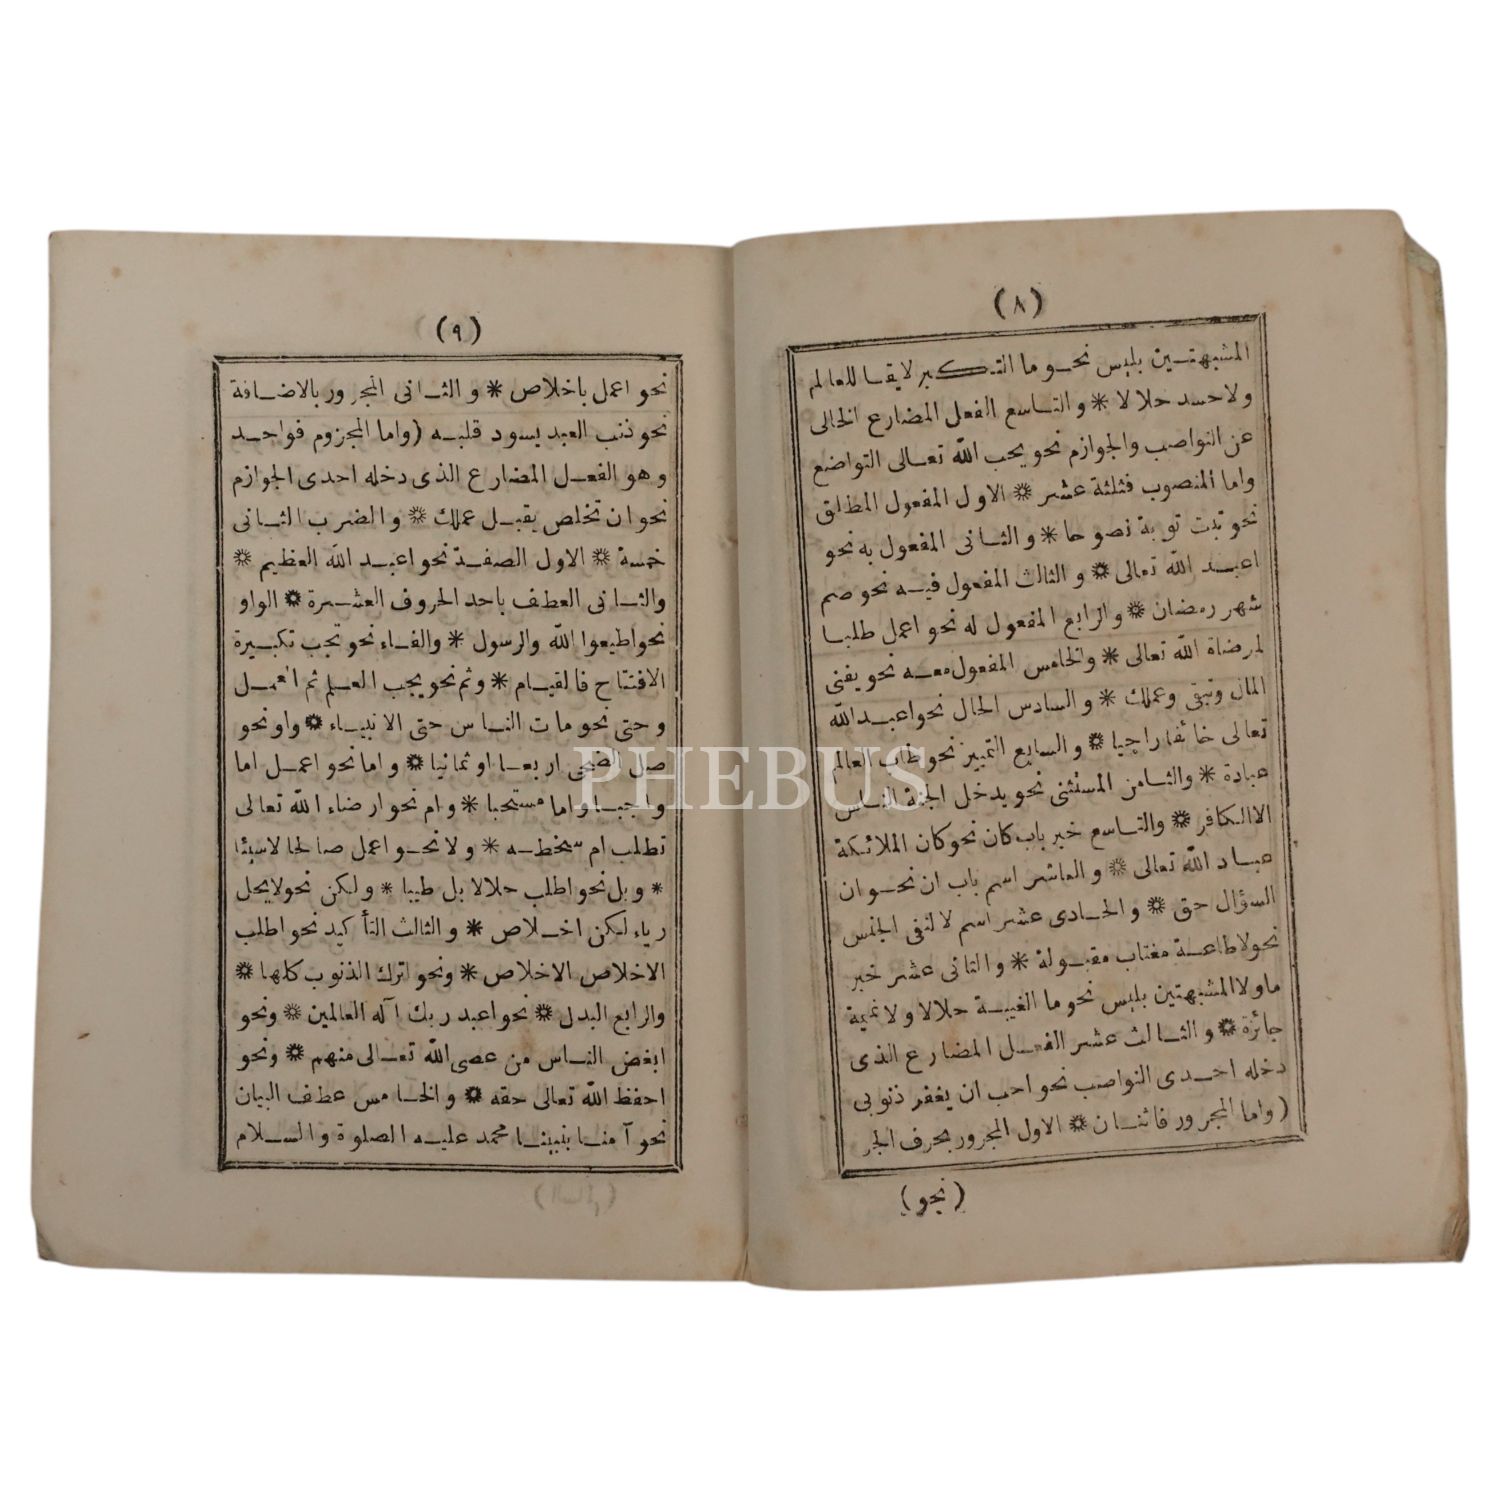 (٨)
المشبهتـين بليس نحـو ما التـكبر لايقـا للعالم
ولاحسد حلالا * والتـاسع الفعل المضارع الخالى
عن النواصب والجوازم نحو يحب الله تعـالى التواضع
واما المنصوب فثلثة عشر * الاول المفعول المطلق
نحو تبت توبة نصوحا * والثـانى المفعول به نحو
اعبـد الله تعالى * والثالث المفعول فيـه نحو صم
شهر رمضان * والرابع المفعول له نحو اعمل طلبـا
لمرضاة الله تعالى * والخامس المفعول معـه نحو يفنى
المال وتبقى وعملك * والسادس الحال نحو اعبـد الله
تعالى خائفا راجيا * والسابع التمييز نحو طاب العالم
عبادة * والثـامن المستثنى نحو يدخل الجنة النـاس
الا الكافر * والتـاسع خبر باب كان نحو كان الملائكة
عبـاد الله تعالى * والعاشر اسم باب ان نحـو ان
السؤال حق * والحـادى عشر اسم لا لنفى الجنس
نحو لا طاعـة مغتاب مقبـولة * والثانى عشر خبر
ما ولا المشبهتين بليس نحو ما الغيبـة حلالا ولا نميمة
جائزة * والثـالث عشر الفعـل المضارع الذى
دخله احـدى النواصب نحو احب ان يغفر ذنوبى
(واما المجرور فاثنـان * الاول المجرور بحرف الجر
(نحو)
(٩)
نحو اعمل باخلاص * والثـانى المجرور بالاضـافة
نحو ذنب العبد يسود قلبـه (واما المجزوم فواحـد
وهو الفعـل المضارع الذى دخله احدى الجوازم
نحو ان تخلص يقبـل عملك * والضرب الثـانى
خمسة * الاول الصفـة نحو اعبـد الله العظيم *
والثـانى العطف باحد الحروف العشـرة * الواو
نحو اطيعوا الله والرسول * والفـاء نحو تجب تكبـيرة
الافتتاح فالقيـام * وثم نحو يجب العـلم ثم العمـل
وحتى نحو مات النـاس حتى الانبيـاء * واو نحو
صل الضحى اربعـا او ثمانيا * واما نحو اعمـل اما
واجبـا واما مستحبا * وام نحو ارضاء الله تعالى
تطلب ام سخطـه * ولا نحـو اعمل صالحا لا سيئا
* وبل نحو اطلب حلالا بل طيبا * ولكن نحو لا يحل
رياء لكن اخـلاص * والثالث التأكيد نحو اطلب
الاخلاص الاخلاص * ونحو اترك الذنوب كلها *
والرابع البدل * نحو اعبد ربك آله العالمين * ونحو
ابغض النـاس من عصى الله تعـالى منهم * ونحو
احفظ الله تعالى حقه * والخـامس عطف البيان
نحو آمنـا بنبينـا محمد عليـه الصلوة والسـلام
PHEBUS